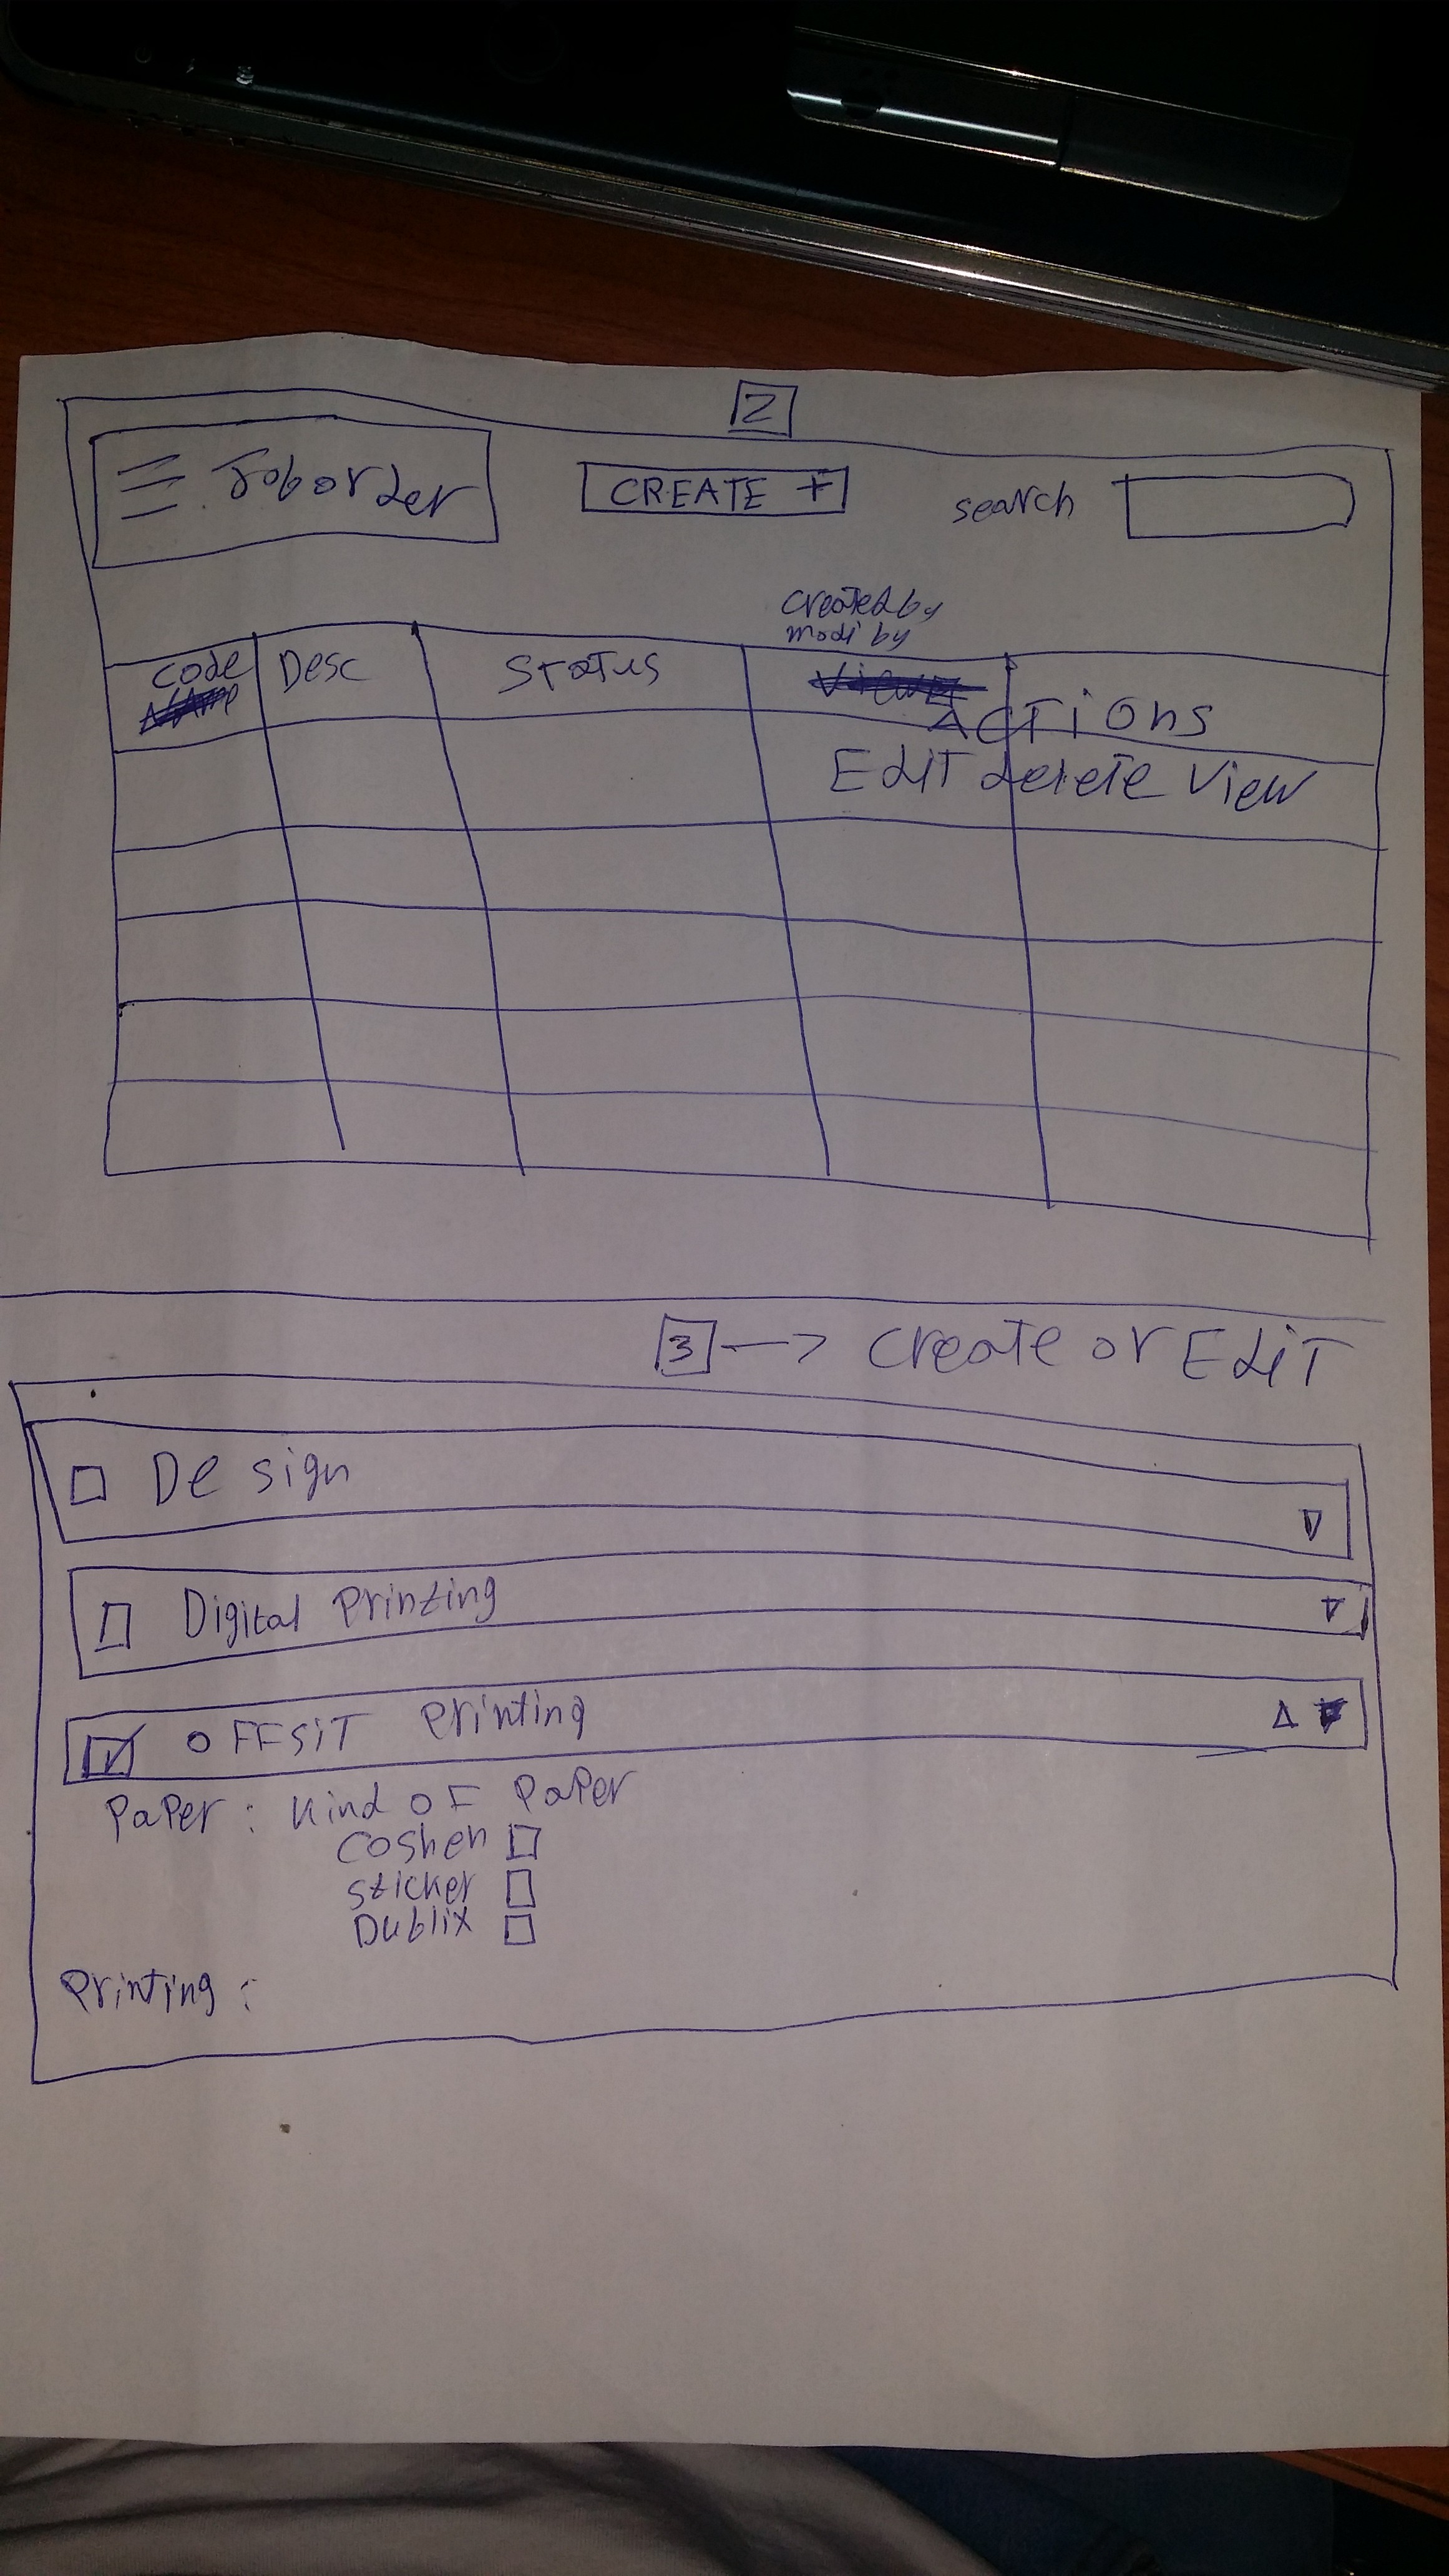 2
Joborder
CREATE +
search
created by
modi by
code
Desc
Status
ACTiONS
EdiT delete View
3 -> create or EdiT
Design
Digital Printing
OFFSiT Printing
PaPer : Kind OF PaPer
Coshen
sticker
Dublix
Printing :